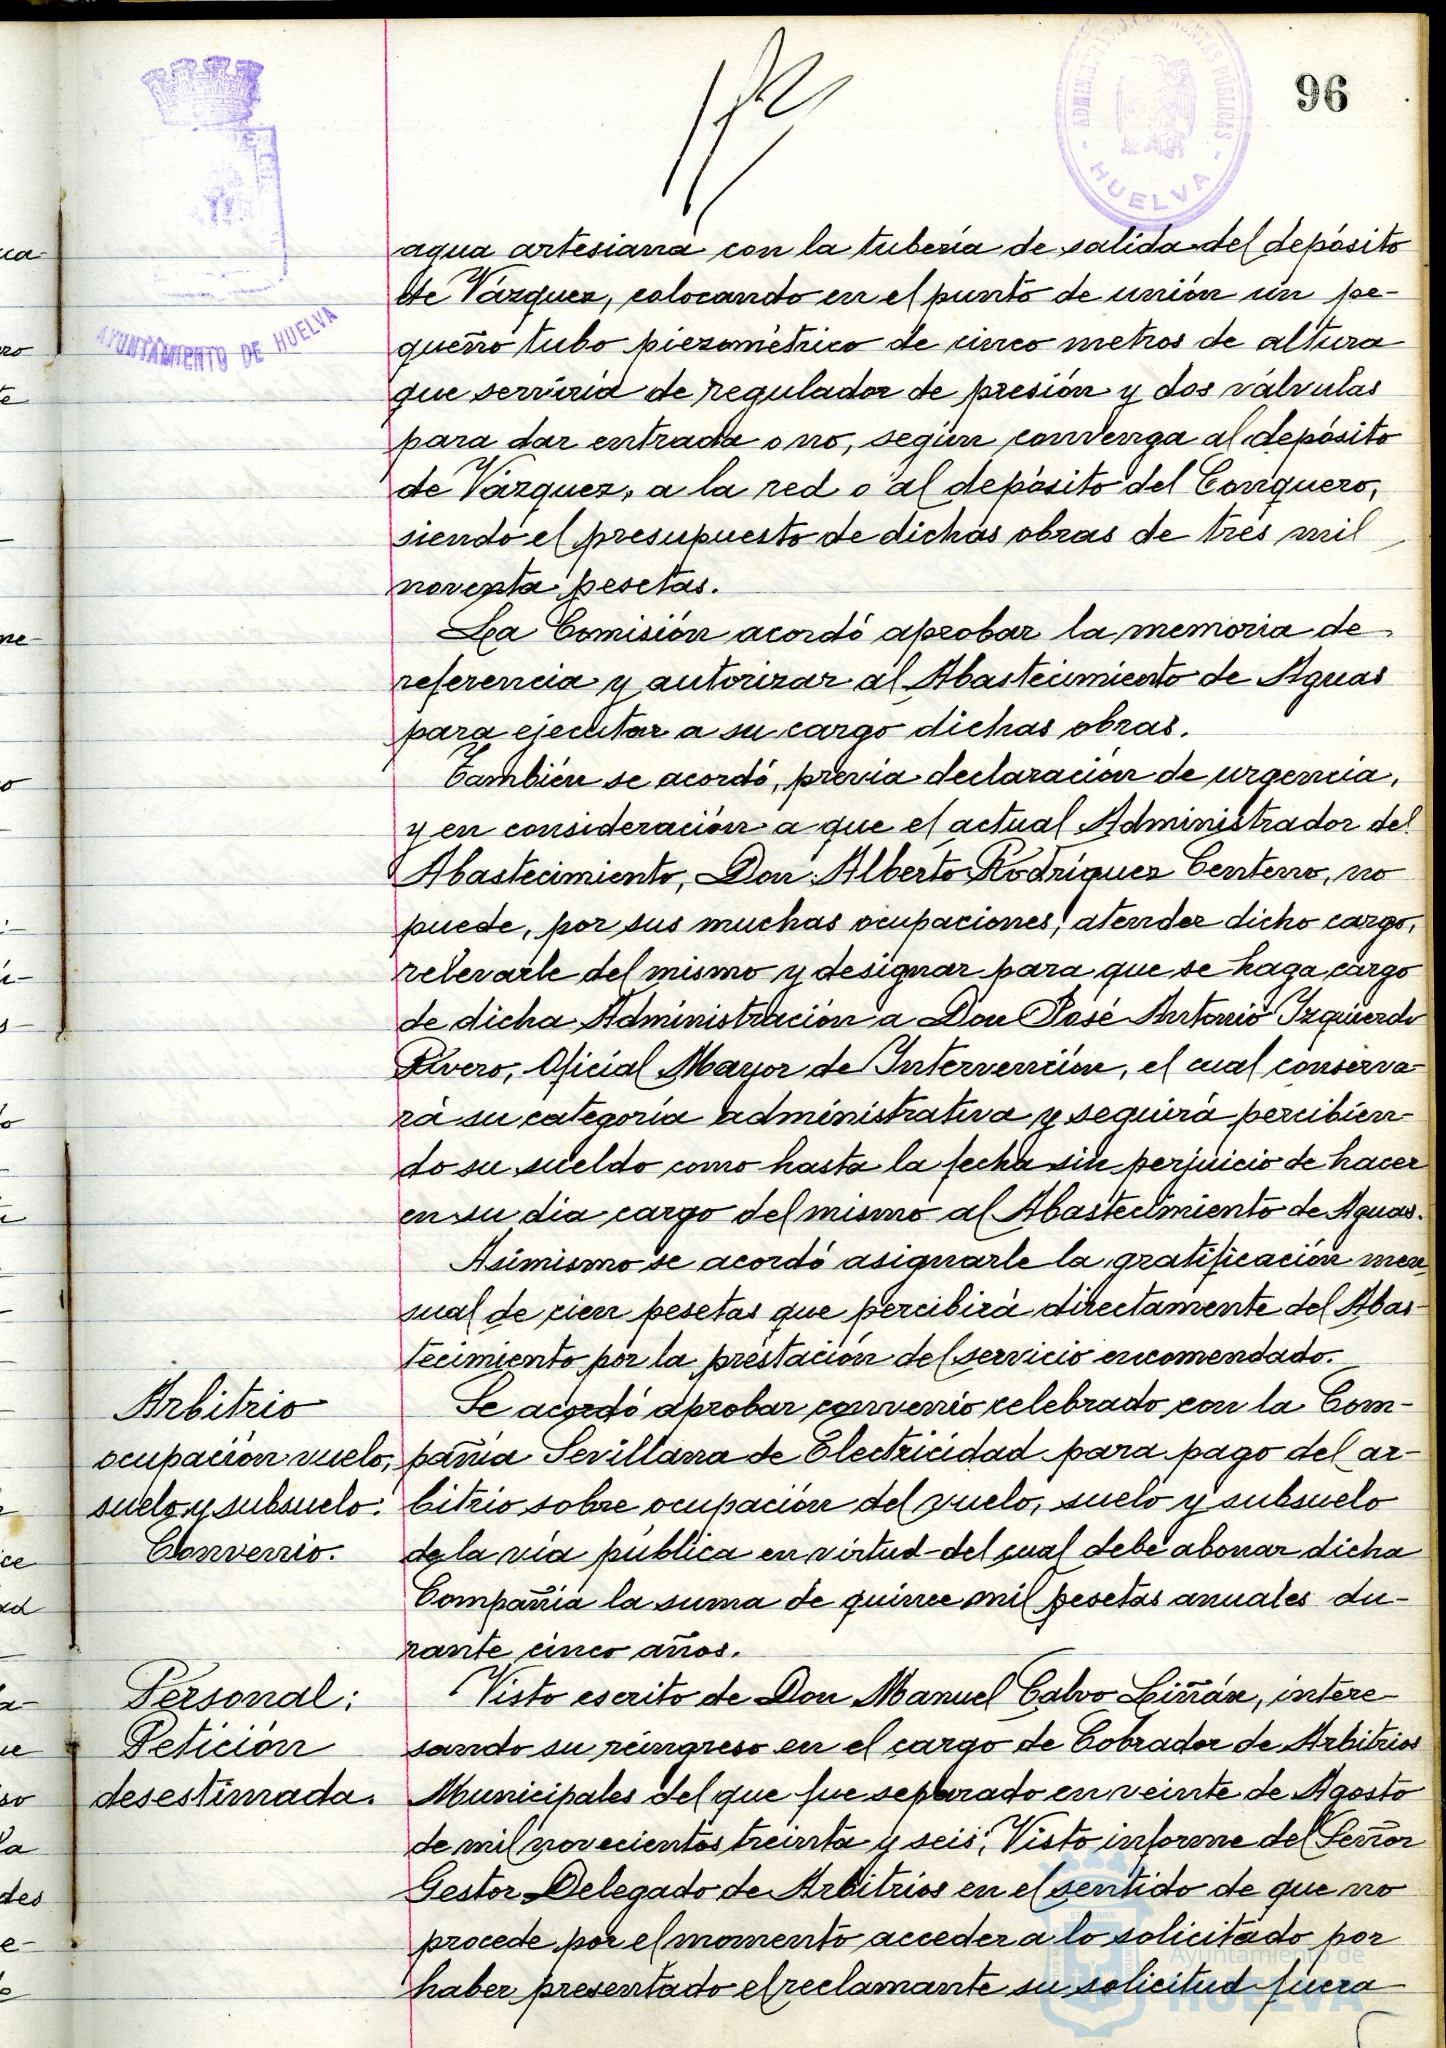 96
ADMINISTRACION DE RENTAS PUBLICAS
- HUELVA -
AYUNTAMIENTO DE HUELVA
agua artesiana con la tubería de salida del depósito
de Vázquez, colocando en el punto de unión un pe-
queño tubo piezométrico de cinco metros de altura
que serviría de regulador de presión y dos válvulas
para dar entrada o no, según convenga al depósito
de Vázquez, a la red o al depósito del Conquero,
siendo el presupuesto de dichas obras de tres mil
noventa pesetas.
La Comisión acordó aprobar la memoria de
referencia y autorizar al Abastecimiento de Aguas
para ejecutar a su cargo dichas obras.
También se acordó, previa declaración de urgencia,
y en consideración a que el actual Administrador del
Abastecimiento, Don Alberto Rodríguez Centeno, no
puede, por sus muchas ocupaciones, atender dicho cargo,
relevarle del mismo y designar para que se haga cargo
de dicha Administración a Don José Antonio Izquierdo
Rivero, Oficial Mayor de Intervención, el cual conserva-
rá su categoría administrativa y seguirá percibien-
do su sueldo como hasta la fecha sin perjuicio de hacer
en su día cargo del mismo al Abastecimiento de Aguas.
Asimismo se acordó asignarle la gratificación men
sual de cien pesetas que percibirá directamente del Abas-
tecimiento por la prestación del servicio encomendado.
Arbitrio
ocupación vuelo,
suelo y subsuelo.
Convenio.
Se acordó aprobar convenio celebrado con la Com-
pañía Sevillana de Electricidad para pago del ar-
bitrio sobre ocupación del vuelo, suelo y subsuelo
de la vía pública en virtud del cual debe abonar dicha
Compañía la suma de quince mil pesetas anuales du-
rante cinco años.
Personal:
Petición
desestimada.
Visto escrito de Don Manuel Calvo Liñán, intere-
sando su reingreso en el cargo de Cobrador de Arbitrios
Municipales del que fue separado en veinte de Agosto
de mil novecientos treinta y seis; Visto informe del Señor
Gestor Delegado de Arbitrios en el sentido de que no
procede por el momento acceder a lo solicitado por
haber presentado el reclamante su solicitud fuera
Ayuntamiento de
HUELVA